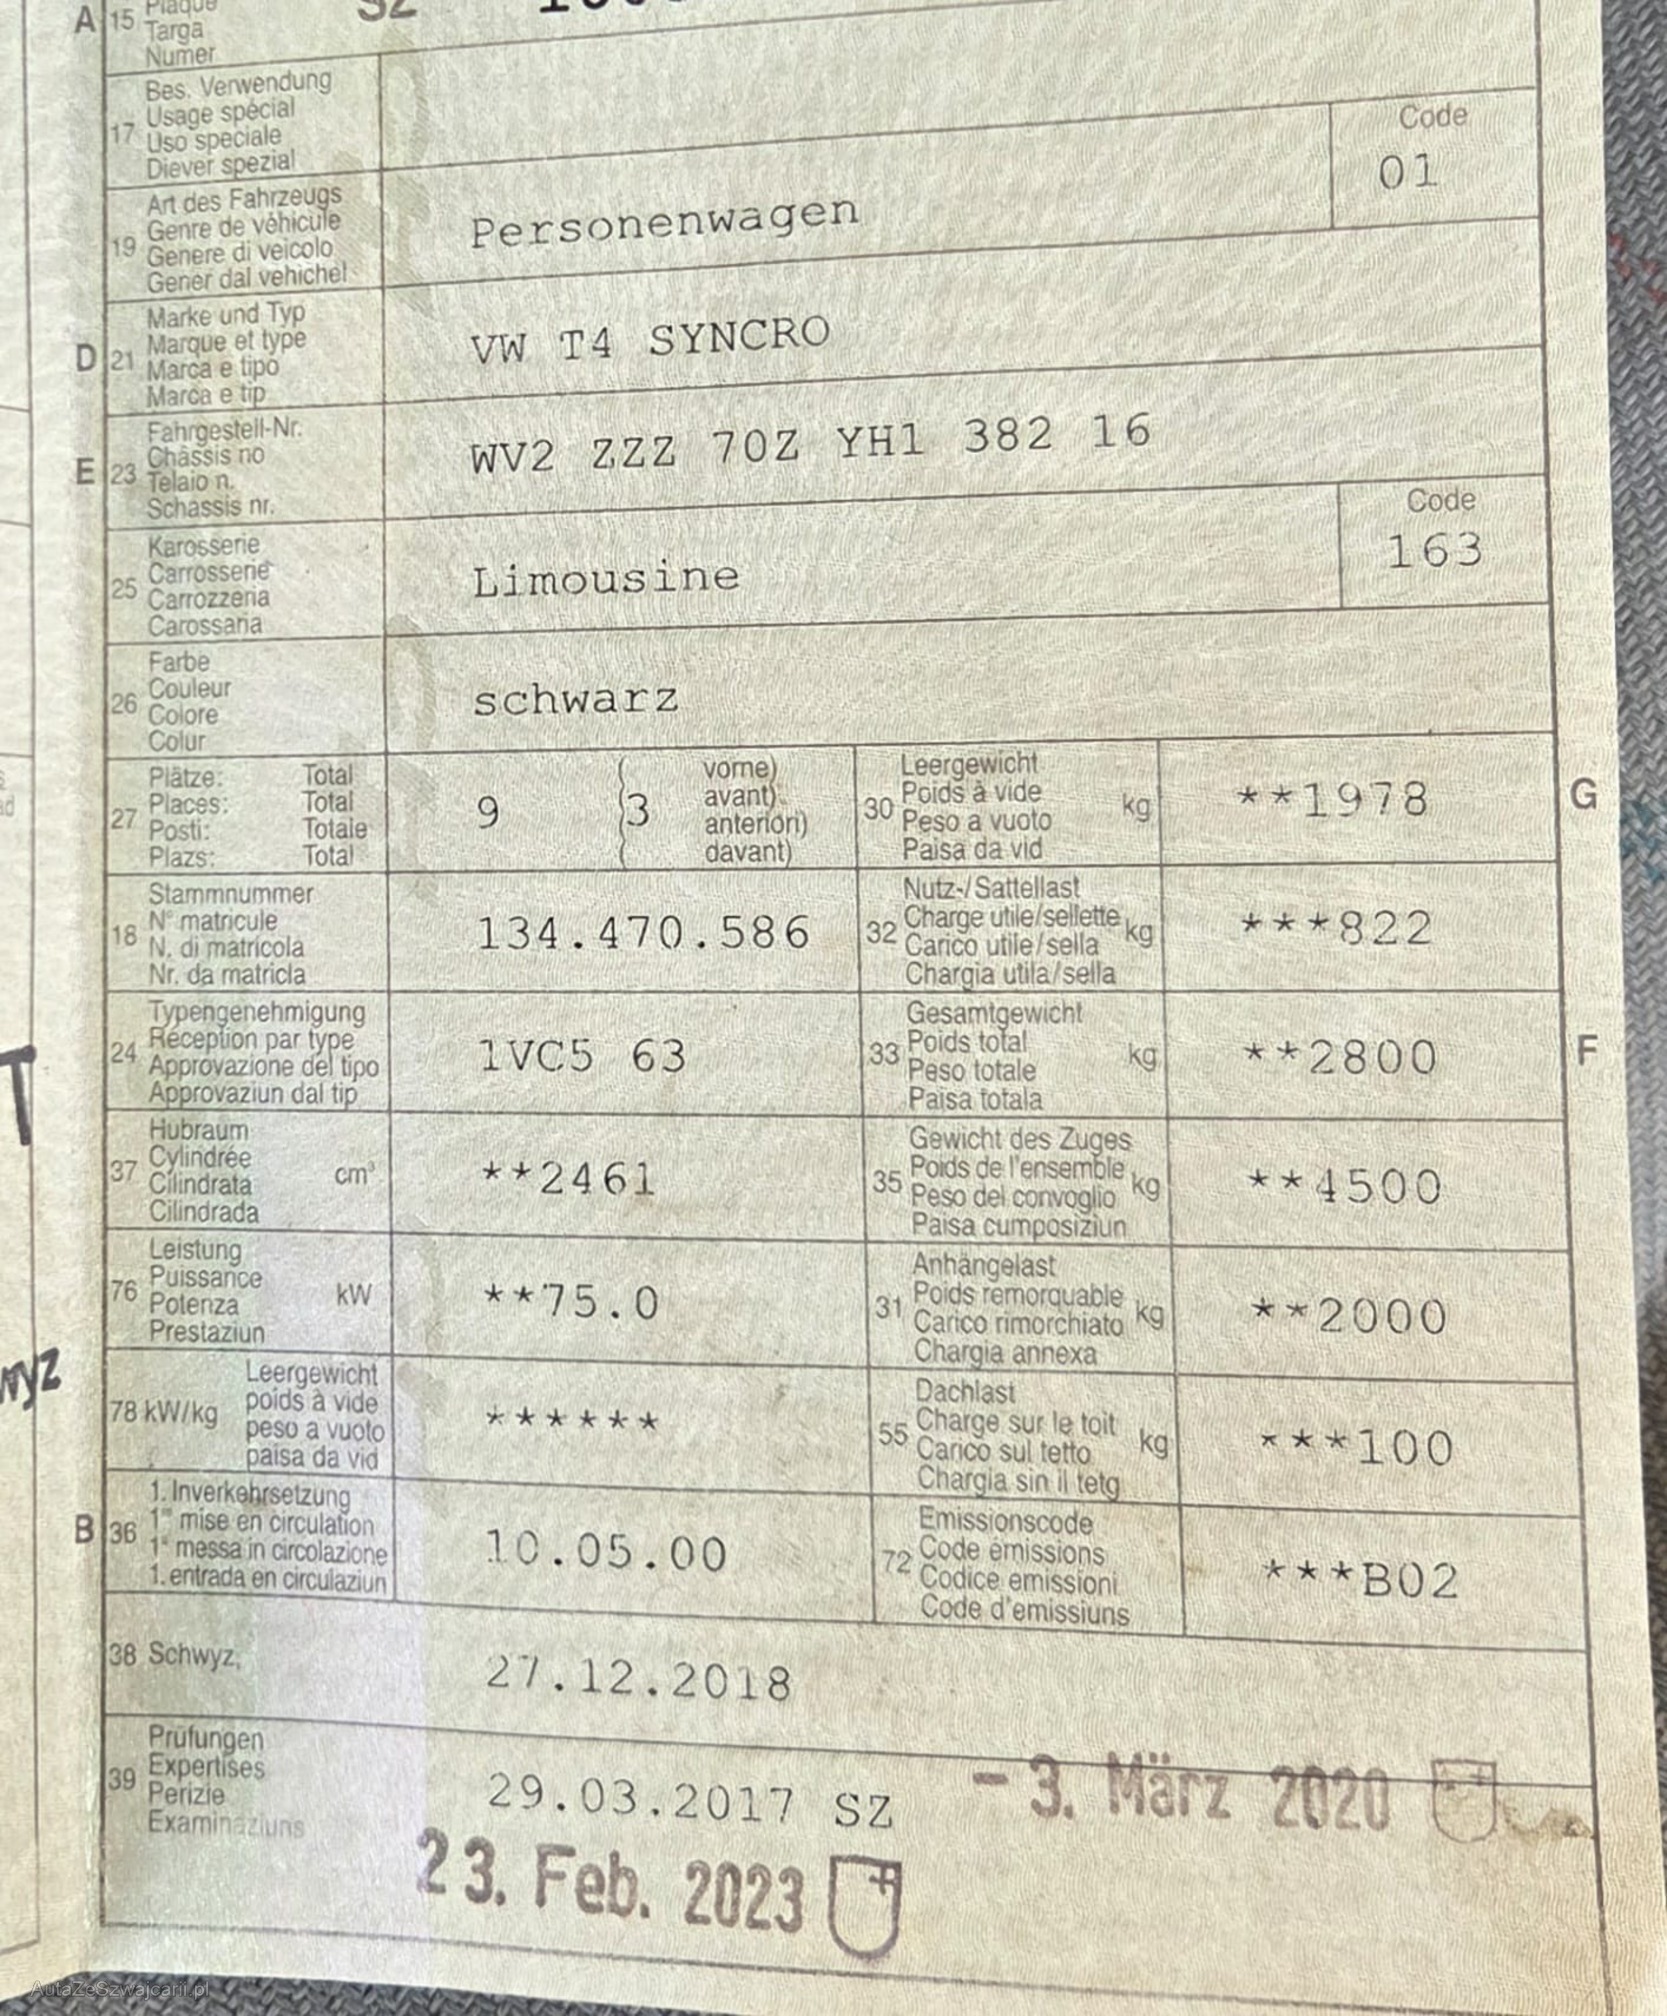 A 15 Plaque SZ
Targa
Numer
17 Bes. Verwendung
Usage spécial
Uso speciale
Diever spezial
19 Art des Fahrzeugs
Genre de véhicule
Genere di veicolo
Gener dal vehichel
Personenwagen
Code
01
D 21 Marke und Typ
Marque et type
Marca e tipo
Marca e tip
VW T4 SYNCRO
E 23 Fahrgestell-Nr.
Châssis no
Telaio n.
Schassis nr.
WV2 ZZZ 70Z YH1 382 16
25 Karosserie
Carrosserie
Carrozzeria
Carossaria
Limousine
Code
163
26 Farbe
Couleur
Colore
Colur
schwarz
27 Plätze: Total
Places: Total
Posti: Totale
Plazs: Total
9 (3 vorne)
avant)
anteriori)
davant)
30 Leergewicht
Poids à vide
Peso a vuoto
Paisa da vid
kg **1978 G
18 Stammnummer
N° matricule
N. di matricola
Nr. da matricla
134.470.586
32 Nutz-/Sattellast
Charge utile/sellette
Carico utile/sella
Chargia utila/sella
kg ***822
24 Typengenehmigung
Réception par type
Approvazione del tipo
Approvaziun dal tip
1VC5 63
33 Gesamtgewicht
Poids total
Peso totale
Paisa totala
kg **2800 F
37 Hubraum
Cylindrée
Cilindrata
Cilindrada
cm³ **2461
35 Gewicht des Zuges
Poids de l'ensemble
Peso del convoglio
Paisa cumposiziun
kg **4500
76 Leistung
Puissance
Potenza
Prestaziun
kW **75.0
31 Anhängelast
Poids remorquable
Carico rimorchiato
Chargia annexa
kg **2000
78 kW/kg Leergewicht
poids à vide
peso a vuoto
paisa da vid
******
55 Dachlast
Charge sur le toit
Carico sul tetto
Chargia sin il tetg
kg ***100
B 36 1. Inverkehrsetzung
1re mise en circulation
1a messa in circolazione
1. entrada en circulaziun
10.05.00
72 Emissionscode
Code émissions
Codice emissioni
Code d'emissiuns
***B02
38 Schwyz,
27.12.2018
39 Prüfungen
Expertises
Perizie
Examinaziuns
29.03.2017 SZ
- 3. März 2020
23. Feb. 2023
T
wyz
AutaZeSzwajcarii.pl